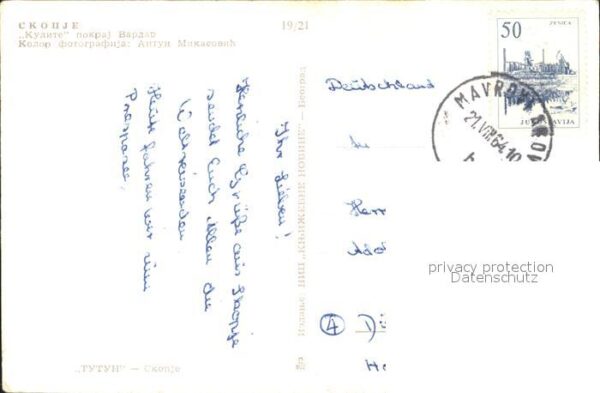 СКОПЈЕ
„Кулите" покрај Вардар
Колор фотографија: Антун Микасовић
19/21
Ihr Lieben!
Herzliche Grüße aus Skopje
sendet Euch Allen die
Heute fahren wir zum
Издање: НИП „КЊИЖЕВНЕ НОВИНЕ" — Београд
„ТУТУН" — Скопје
50
ZENICA
JUGOSLAVIJA
MAVROVI
21.VIII.64.10
Deutschland
Herr
privacy protection
Datenschutz
4